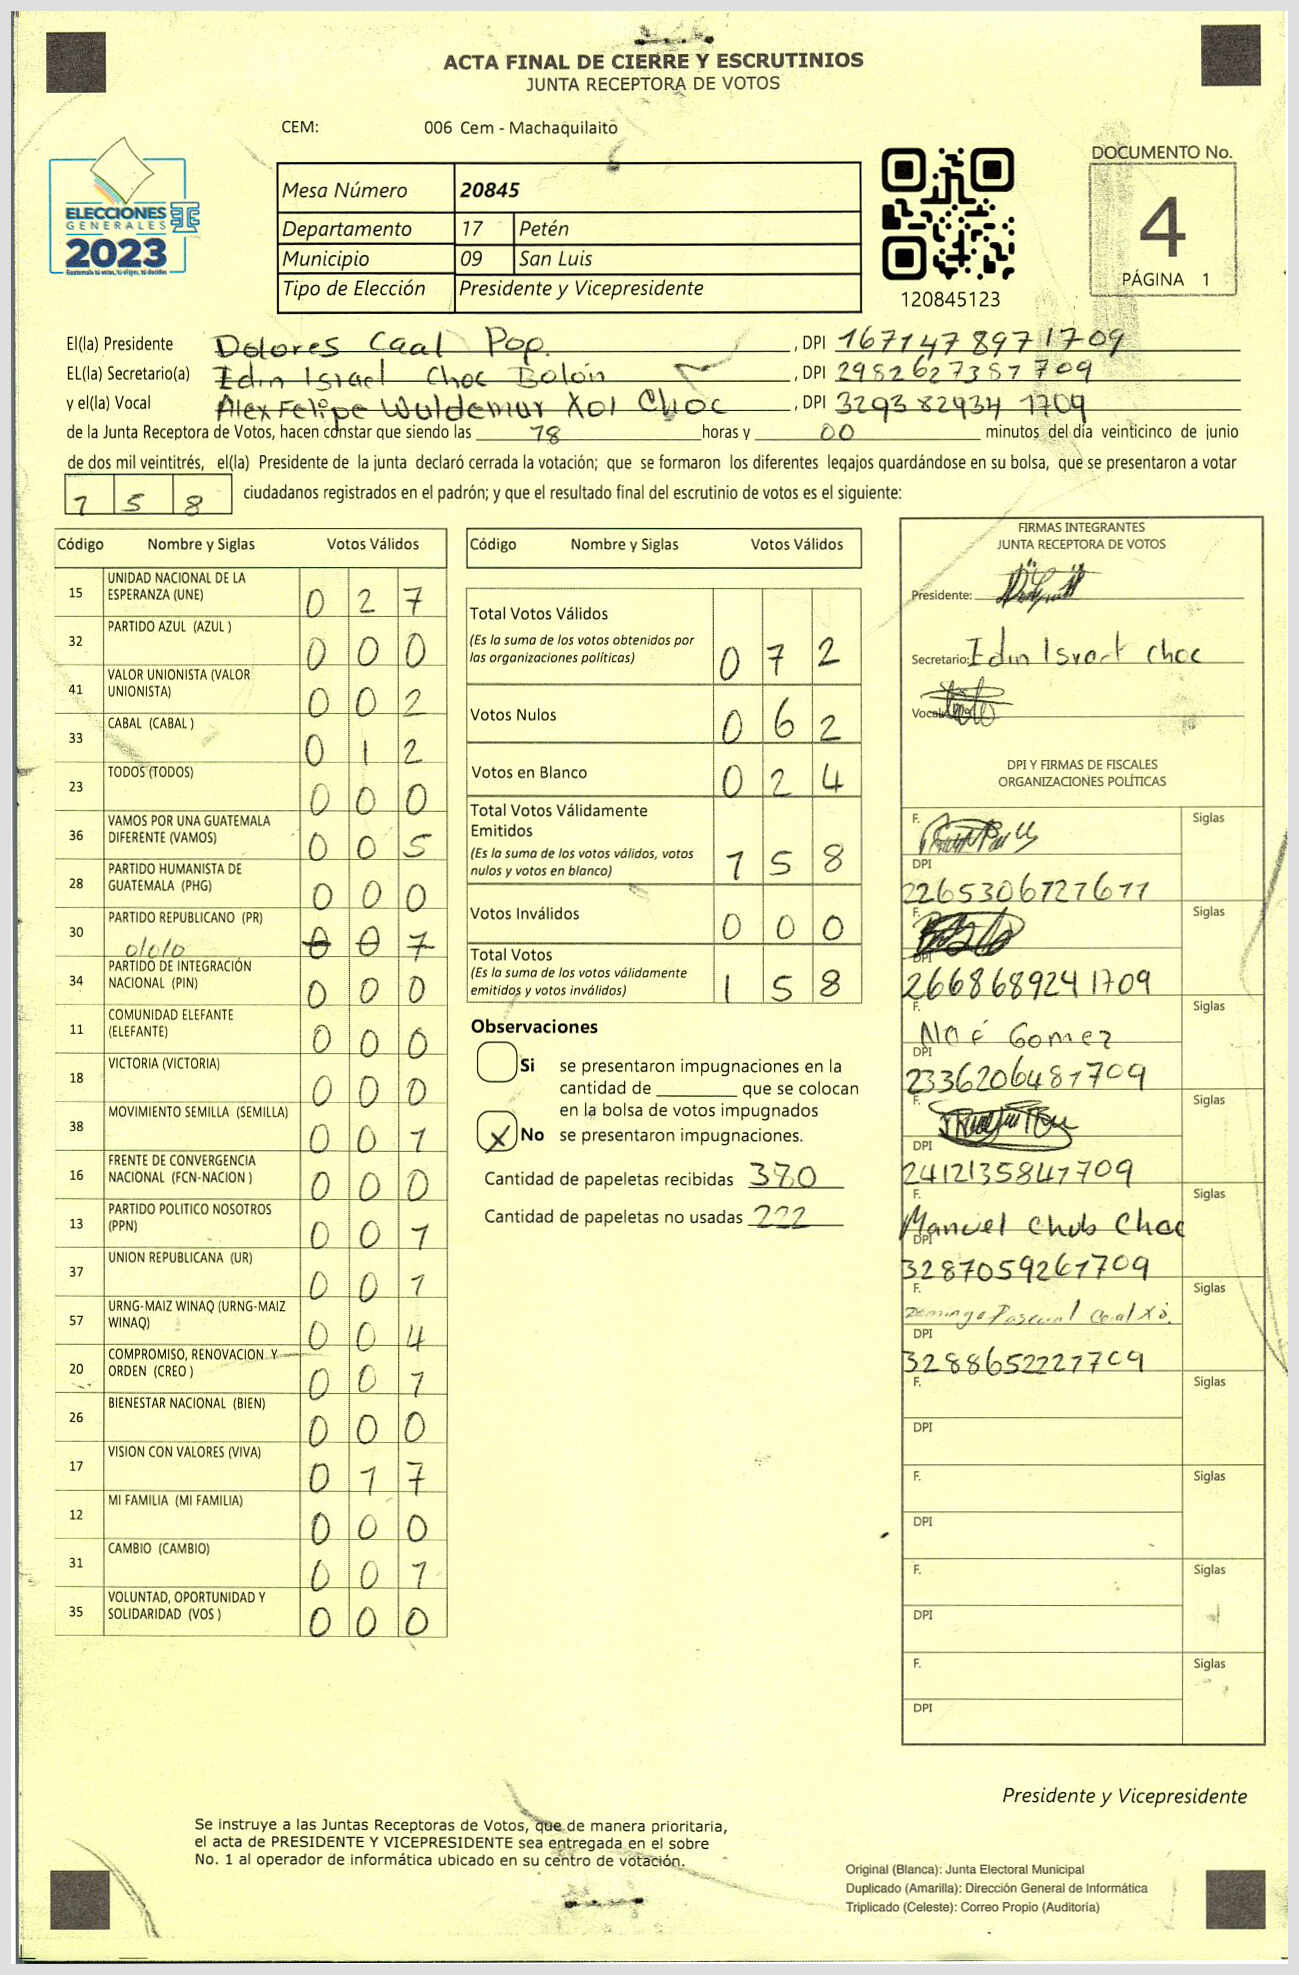 ACTA FINAL DE CIERRE Y ESCRUTINIOS
JUNTA RECEPTORA DE VOTOS
CEM: 006 Cem - Machaquilaito
ELECCIONES
GENERALES
2023
Guatemala tú votas, tú eliges, tú decides
Mesa Número 20845
Departamento 17 Petén
Municipio 09 San Luis
Tipo de Elección Presidente y Vicepresidente
120845123
DOCUMENTO No.
4
PÁGINA 1
El(la) Presidente Dolores Caal Pop. , DPI 1671478971709
EL(la) Secretario(a) Edin Israel Choc Bolón , DPI 2982627387709
y el(la) Vocal Alex Felipe Waldemar Xol Choc , DPI 3293829341709
de la Junta Receptora de Votos, hacen constar que siendo las 18 horas y 00 minutos del día veinticinco de junio
de dos mil veintitrés, el(la) Presidente de la junta declaró cerrada la votación; que se formaron los diferentes legajos guardándose en su bolsa, que se presentaron a votar
158 ciudadanos registrados en el padrón; y que el resultado final del escrutinio de votos es el siguiente:
Código Nombre y Siglas Votos Válidos
15 UNIDAD NACIONAL DE LA ESPERANZA (UNE) 0 2 7
32 PARTIDO AZUL (AZUL ) 0 0 0
41 VALOR UNIONISTA (VALOR UNIONISTA) 0 0 2
33 CABAL (CABAL ) 0 1 2
23 TODOS (TODOS) 0 0 0
36 VAMOS POR UNA GUATEMALA DIFERENTE (VAMOS) 0 0 5
28 PARTIDO HUMANISTA DE GUATEMALA (PHG) 0 0 0
30 PARTIDO REPUBLICANO (PR) 0/0/0 0 0 7
34 PARTIDO DE INTEGRACIÓN NACIONAL (PIN) 0 0 0
11 COMUNIDAD ELEFANTE (ELEFANTE) 0 0 0
18 VICTORIA (VICTORIA) 0 0 0
38 MOVIMIENTO SEMILLA (SEMILLA) 0 0 1
16 FRENTE DE CONVERGENCIA NACIONAL (FCN-NACION ) 0 0 0
13 PARTIDO POLITICO NOSOTROS (PPN) 0 0 1
37 UNION REPUBLICANA (UR) 0 0 1
57 URNG-MAIZ WINAQ (URNG-MAIZ WINAQ) 0 0 4
20 COMPROMISO, RENOVACION Y ORDEN (CREO ) 0 0 1
26 BIENESTAR NACIONAL (BIEN) 0 0 0
17 VISION CON VALORES (VIVA) 0 1 7
12 MI FAMILIA (MI FAMILIA) 0 0 0
31 CAMBIO (CAMBIO) 0 0 1
35 VOLUNTAD, OPORTUNIDAD Y SOLIDARIDAD (VOS ) 0 0 0
Código Nombre y Siglas Votos Válidos
Total Votos Válidos
(Es la suma de los votos obtenidos por
las organizaciones políticas) 0 7 2
Votos Nulos 0 6 2
Votos en Blanco 0 2 4
Total Votos Válidamente
Emitidos
(Es la suma de los votos válidos, votos
nulos y votos en blanco) 1 5 8
Votos Inválidos 0 0 0
Total Votos
(Es la suma de los votos válidamente
emitidos y votos inválidos) 1 5 8
Observaciones
Si se presentaron impugnaciones en la
cantidad de ________ que se colocan
en la bolsa de votos impugnados
X No se presentaron impugnaciones.
Cantidad de papeletas recibidas 380
Cantidad de papeletas no usadas 222
FIRMAS INTEGRANTES
JUNTA RECEPTORA DE VOTOS
Presidente:
Secretario: Edin Israel Choc
Vocal:
DPI Y FIRMAS DE FISCALES
ORGANIZACIONES POLÍTICAS
F. Siglas
DPI
2265306727611
F. Siglas
DPI
2668689241709
F. Siglas
Noé Gomez
DPI
2336206481709
F. Siglas
DPI
2412135841709
F. Siglas
Manuel Chub Choc
DPI
3287059261709
F. Siglas
Domingo Pascual Caal Xó.
DPI
3288652227709
F. Siglas
DPI
F. Siglas
DPI
F. Siglas
DPI
F. Siglas
DPI
Presidente y Vicepresidente
Se instruye a las Juntas Receptoras de Votos, que de manera prioritaria,
el acta de PRESIDENTE Y VICEPRESIDENTE sea entregada en el sobre
No. 1 al operador de informática ubicado en su centro de votación.
Original (Blanca): Junta Electoral Municipal
Duplicado (Amarilla): Dirección General de Informática
Triplicado (Celeste): Correo Propio (Auditoría)